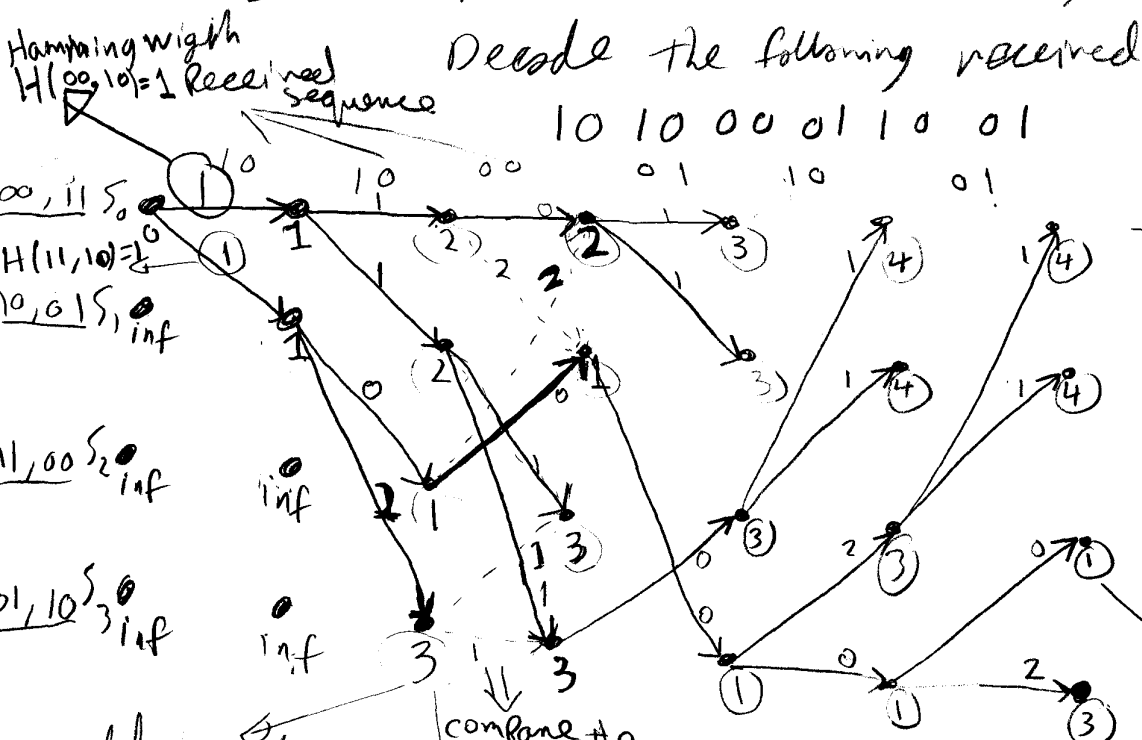 Hamming wigth
H(00,10)=1 Received
sequence
Decode the following received
10 10 00 01 10 01
10 10 00 01 10 01
1 1 0 1
00,11 S0
0 1 (2) 2 (3)
H(11,10)=1 (1) 1 2 2 1 1 (4) 1 (4)
10,01 S1 inf
1 2 1 3)
0 0 1 (4) 1 (4)
11,00 S2 inf
inf 2 (1 1 3 0 (3) 2 (3) 0 (1)
01,10 S3 inf
inf 3 1 3 0 (1) 0 (1) 2 (3)
compare the